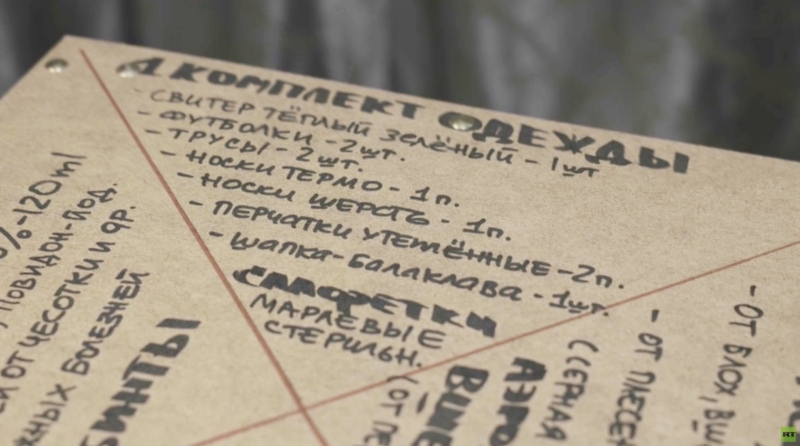 1 КОМПЛЕКТ ОДЕЖДЫ
- СВИТЕР ТЁПЛЫЙ ЗЕЛЁНЫЙ - 1шт
- ФУТБОЛКИ - 2шт.
- ТРУСЫ - 2шт.
- НОСКИ ТЕРМО - 1п.
- НОСКИ ШЕРСТЬ - 1п.
- ПЕРЧАТКИ УТЕПЛЁННЫЕ - 2п.
- ШАПКА-БАЛАКЛАВА - 1шт.
САЛФЕТКИ
МАРЛЕВЫЕ
СТЕРИЛЬН.
%-120ml
ПОВИДОН-ЙОД.
ОТ ЧЕСОТКИ И ДР.
БОЛЕЗНЕЙ
БИНТЫ
АЭРО
(СЕРНАЯ
- ОТ ПЛЕСЕ
- ОТ БЛОХ,
RT